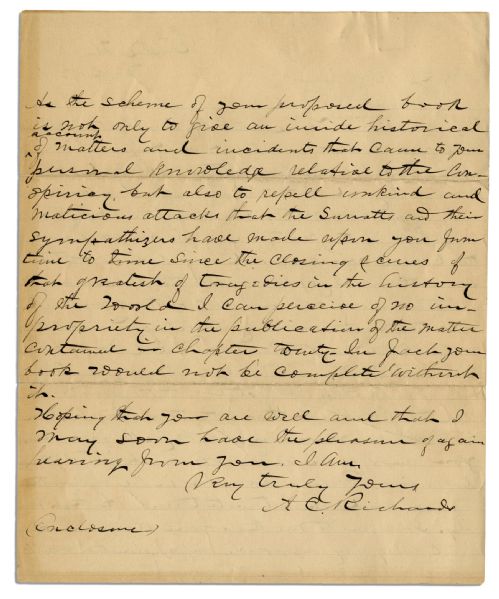 As the scheme of your proposed book
is not only to give an inside historical
account
of matters and incidents that came to your
personal knowledge relative to the con-
spiracy, but also to repell unkind and
malicious attacks that the Surratts and their
sympathizers have made upon you from
time to time since the closing scenes of
that greatest of tragedies in the history
of the World I can perceive of no im-
propriety in the publication of the matter
contained in chapter twenty. In fact your
book would not be complete without
it.
Hoping that you are well and that I
may soon have the pleasure of again
hearing from you. I Am
Very truly yours
A C. Richards
(Enclosure)